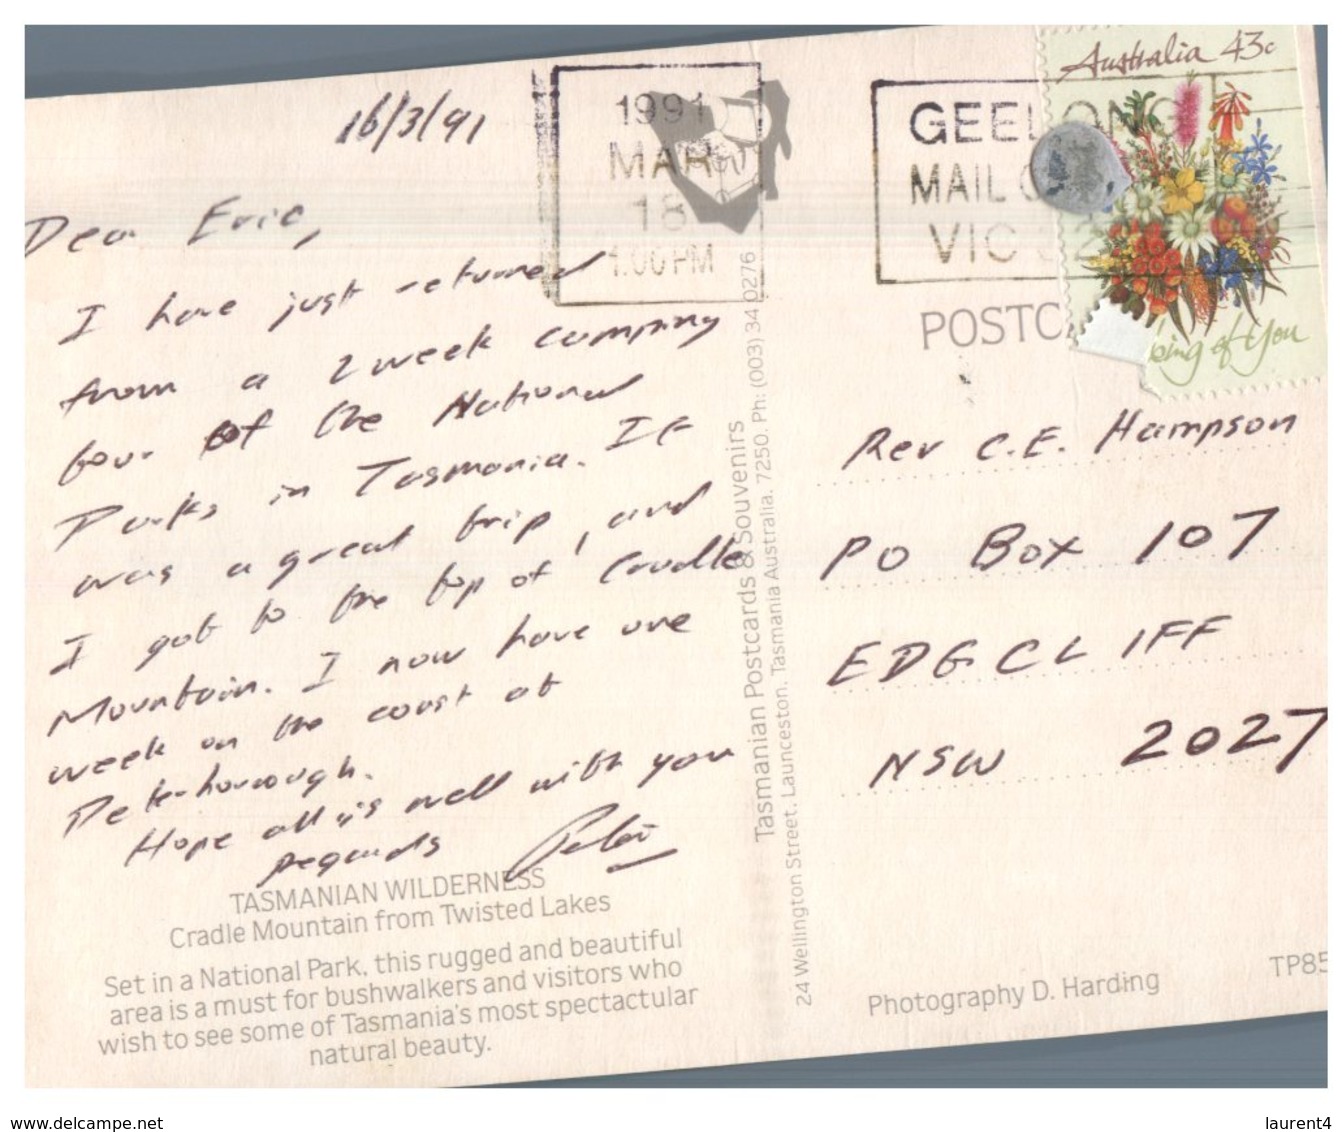 16/3/91
Dear Eric,
I have just returned
from a 2 week camping
tour of the National
Parks in Tasmania. It
was a great trip, and
I got to the top of Cradle
Mountain. I now have one
week on the coast at
Peterborough.
Hope all is well with you
regards Peter
TASMANIAN WILDERNESS
Cradle Mountain from Twisted Lakes
Set in a National Park, this rugged and beautiful
area is a must for bushwalkers and visitors who
wish to see some of Tasmania's most spectactular
natural beauty.
1991
MAR
18
1.00 PM
GEELONG
MAIL
VIC
Australia 43c
of You
POSTC
Tasmanian Postcards & Souvenirs
24 Wellington Street, Launceston, Tasmania Australia. 7250. Ph: (003) 34 0276
Rev C.E. Hampson
PO Box 107
EDGCLIFF
NSW 2027
Photography D. Harding
TP85
www.delcampe.net
laurent4